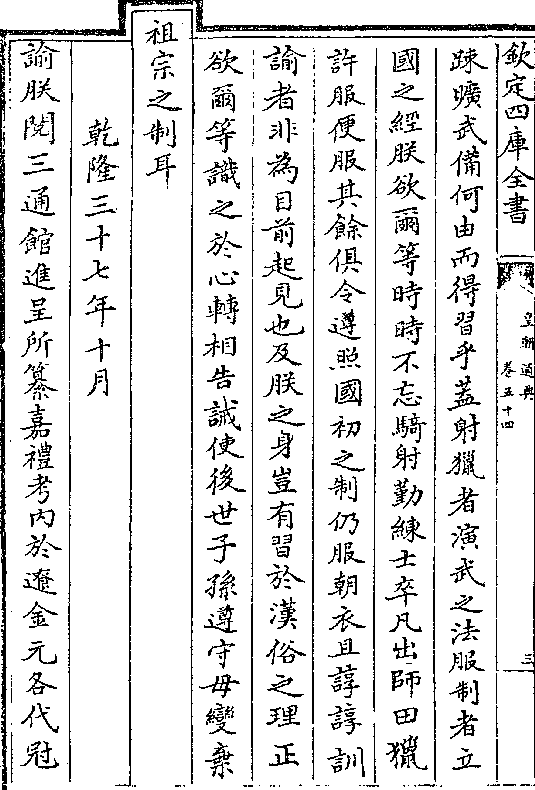 欽定四庫全書
皇朝通典
卷五十四
三
踈曠武備何由而得習乎蓋射獵者演武之法服制者立
國之經朕欲爾等時時不忘騎射勤練士卒凡出師田獵
許服便服其餘俱令遵照國初之制仍服朝衣且諄諄訓
諭者非為目前起見也及朕之身豈有習於漢俗之理正
欲爾等識之於心轉相告誡使後世子孫遵守毋變棄
祖宗之制耳
乾隆三十七年十月
諭朕閱三通館進呈所纂嘉禮考內於遼金元各代冠